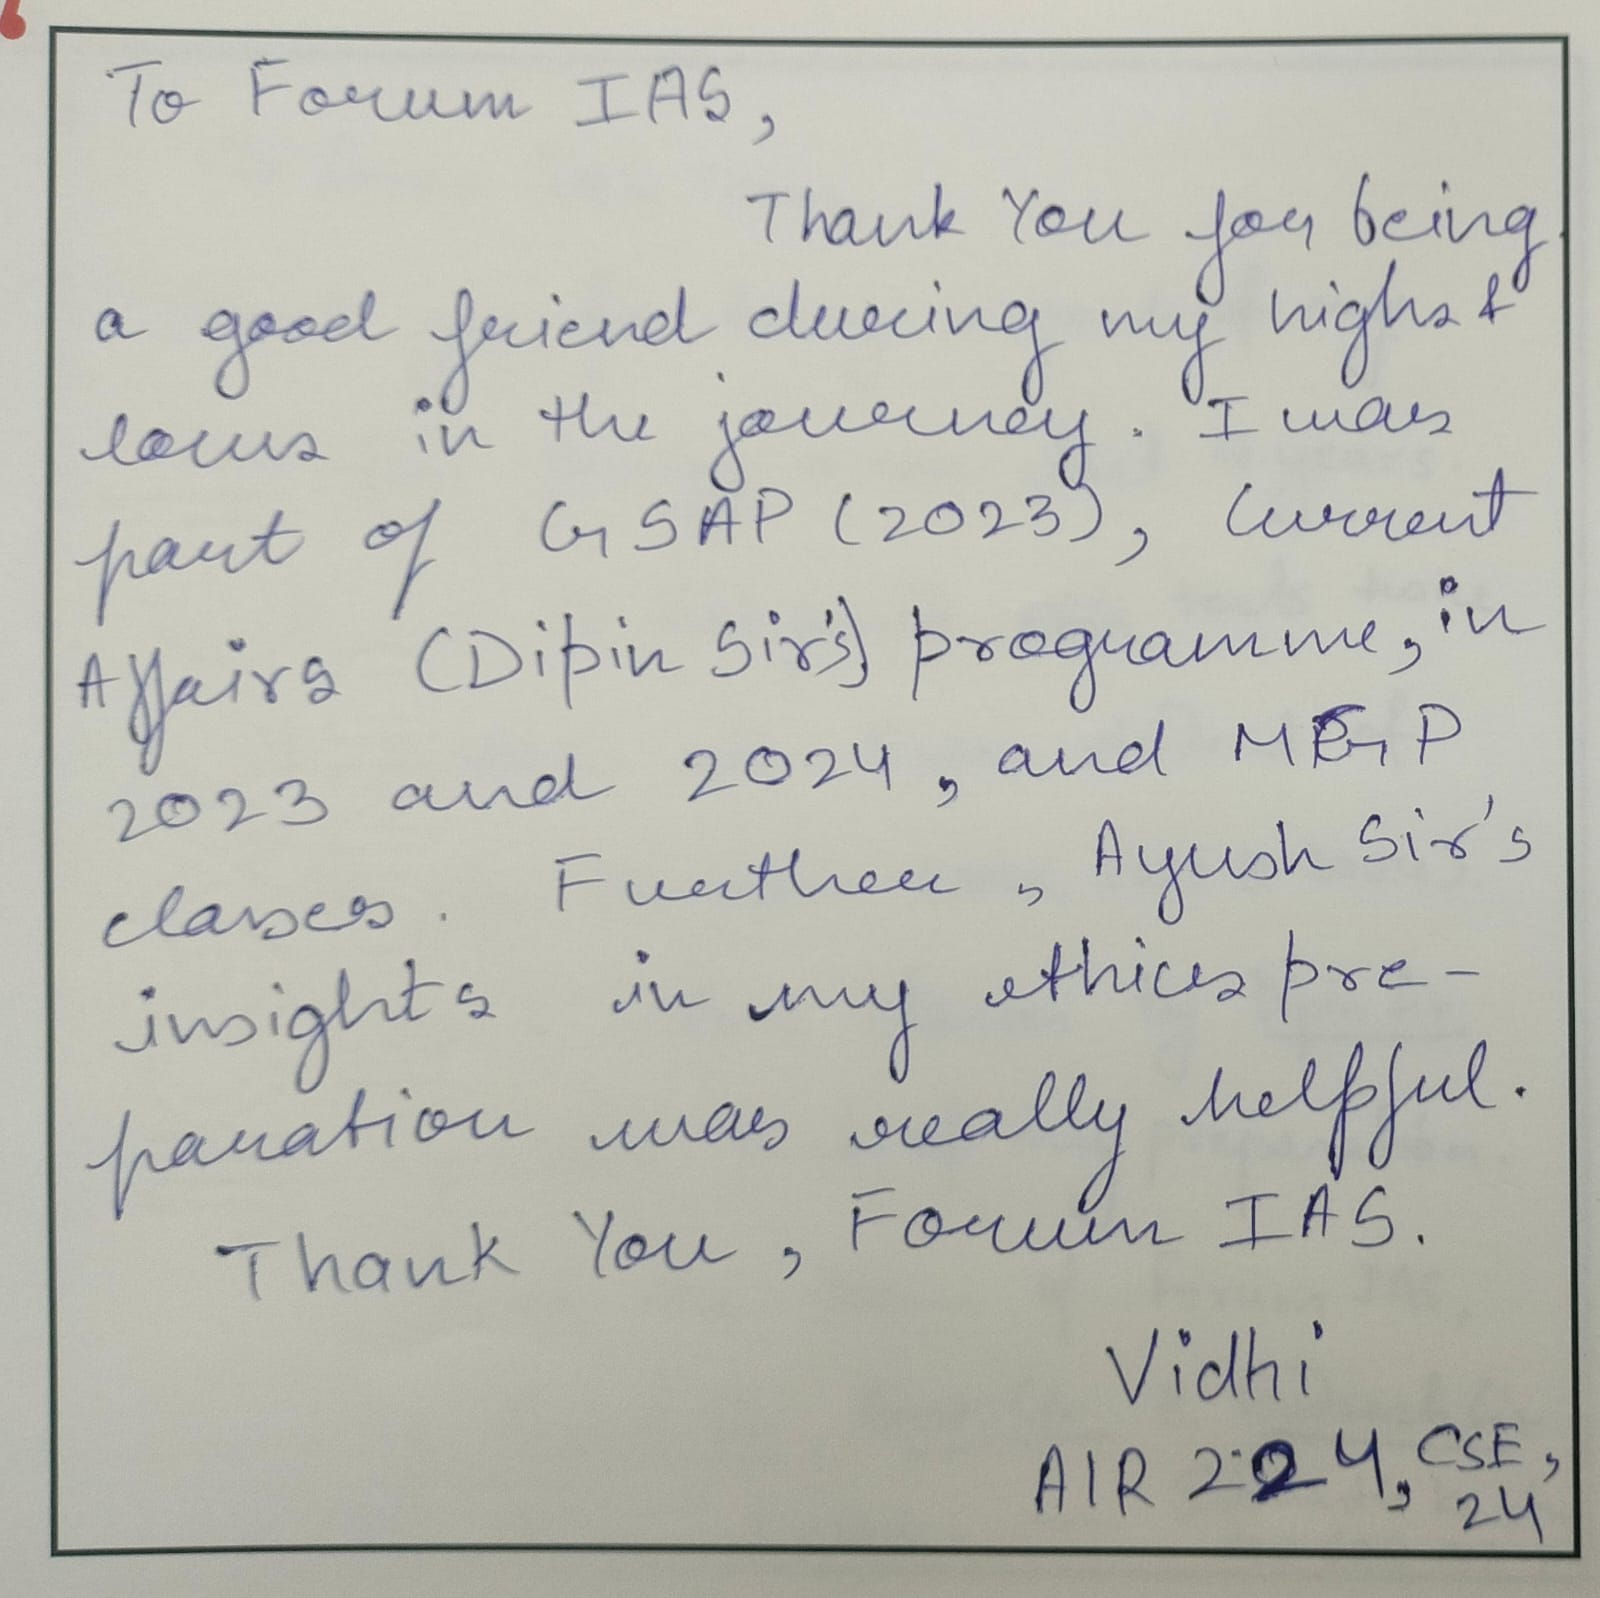 To Forum IAS,
Thank You for being
a good friend during my highs &
lows in the journey. I was
part of GSAP (2023), Current
Affairs (Dipin Sir's) programme, in
2023 and 2024, and MGP
classes. Further, Ayush Sir's
insights in my ethics pre-
paration was really helpful.
Thank You, Forum IAS.
Vidhi
AIR 224, CSE,
24